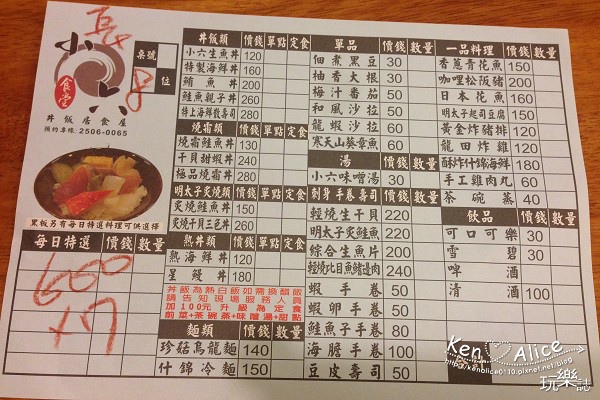 小六食堂
丼飯居食屋
預約專線:2506-0065
桌號
位
黑板另有每日特選料理可供選擇
每日特選 價錢 數量
600
×7
丼飯類 價錢 單點 定食
小六生魚丼 120
特製海鮮丼 160
鮪魚丼 200
鮭魚親子丼 260
特上海鮮散壽司 280
燒霜類 價錢 單點 定食
燒霜鮭魚丼 130
干貝甜蝦丼 240
極品燒霜丼 280
明太子炙燒類 價錢 單點 定食
炙燒鮭魚丼 150
炙燒干貝三色丼 260
熟丼類 價錢 單點 定食
熟海鮮丼 120
星鰻丼 180
丼飯為熱白飯如需換醋飯
請告知現場服務人員
加100元升級為定食
前菜+茶碗蒸+味噌湯+甜點
麵類 價錢 數量
珍菇烏龍麵 140
什錦冷麵 150
單品 價錢 數量
佃煮黑豆 30
柚香大根 30
梅汁番茄 50
和風沙拉 60
龍蝦沙拉 60
寒天山葵章魚 60
湯
小六味噌湯 30
刺身手卷壽司
輕燒生干貝 220
明太子炙鮭魚 220
綜合生魚片 200
輕燒比目魚鰭邊肉 240
蝦手卷 50
蝦卵手卷 50
鮭魚子手卷 80
海膽手卷 100
豆皮壽司 50
一品料理 價錢 數量
香蔥青花魚 150
咖哩松阪豬 200
日本花魚 160
明太子起司豆腐 150
黃金炸豬排 120
龍田炸雞 120
酥炸什錦海鮮 180
手工雞肉丸 60
茶碗蒸 40
飲品
可口可樂 30
雪碧 30
啤酒
清酒 100
Ken Alice
http://kenalice0110.pixnet.net/blog
玩樂誌